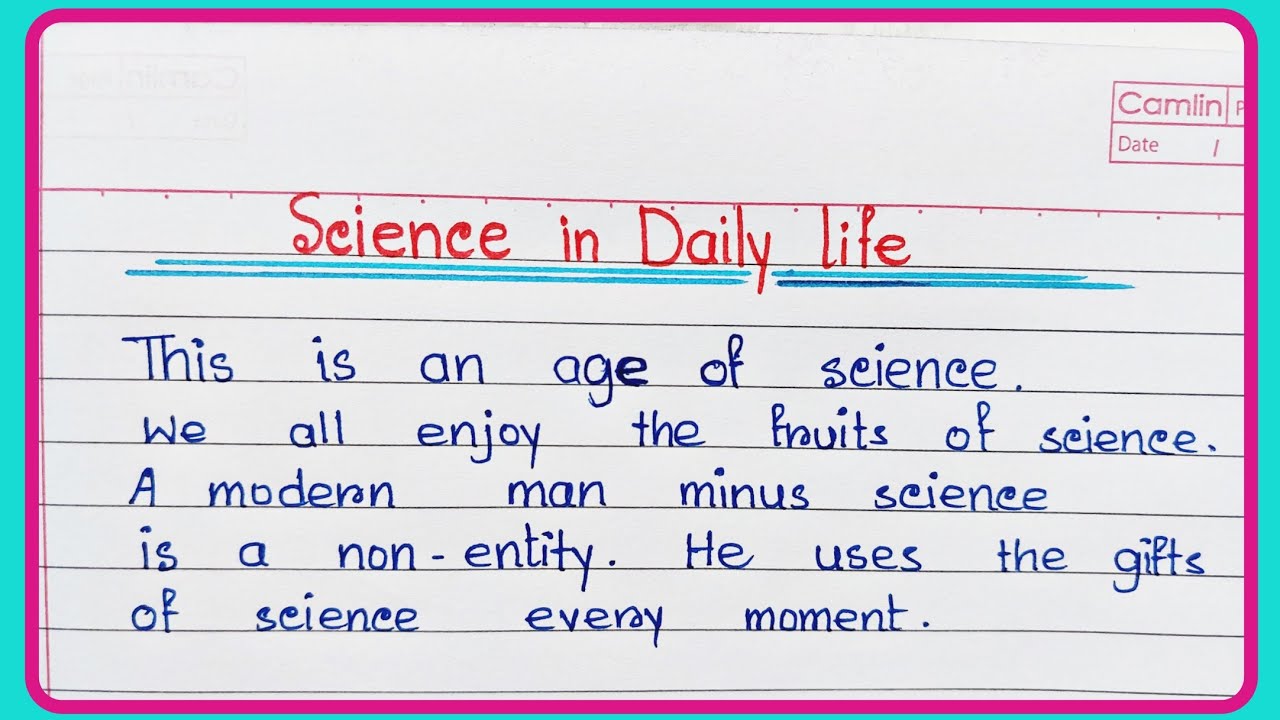 Camlin
Date /
Science in Daily life
This is an age of science.
We all enjoy the fruits of science.
A modern man minus science
is a non-entity. He uses the gifts
of science every moment.